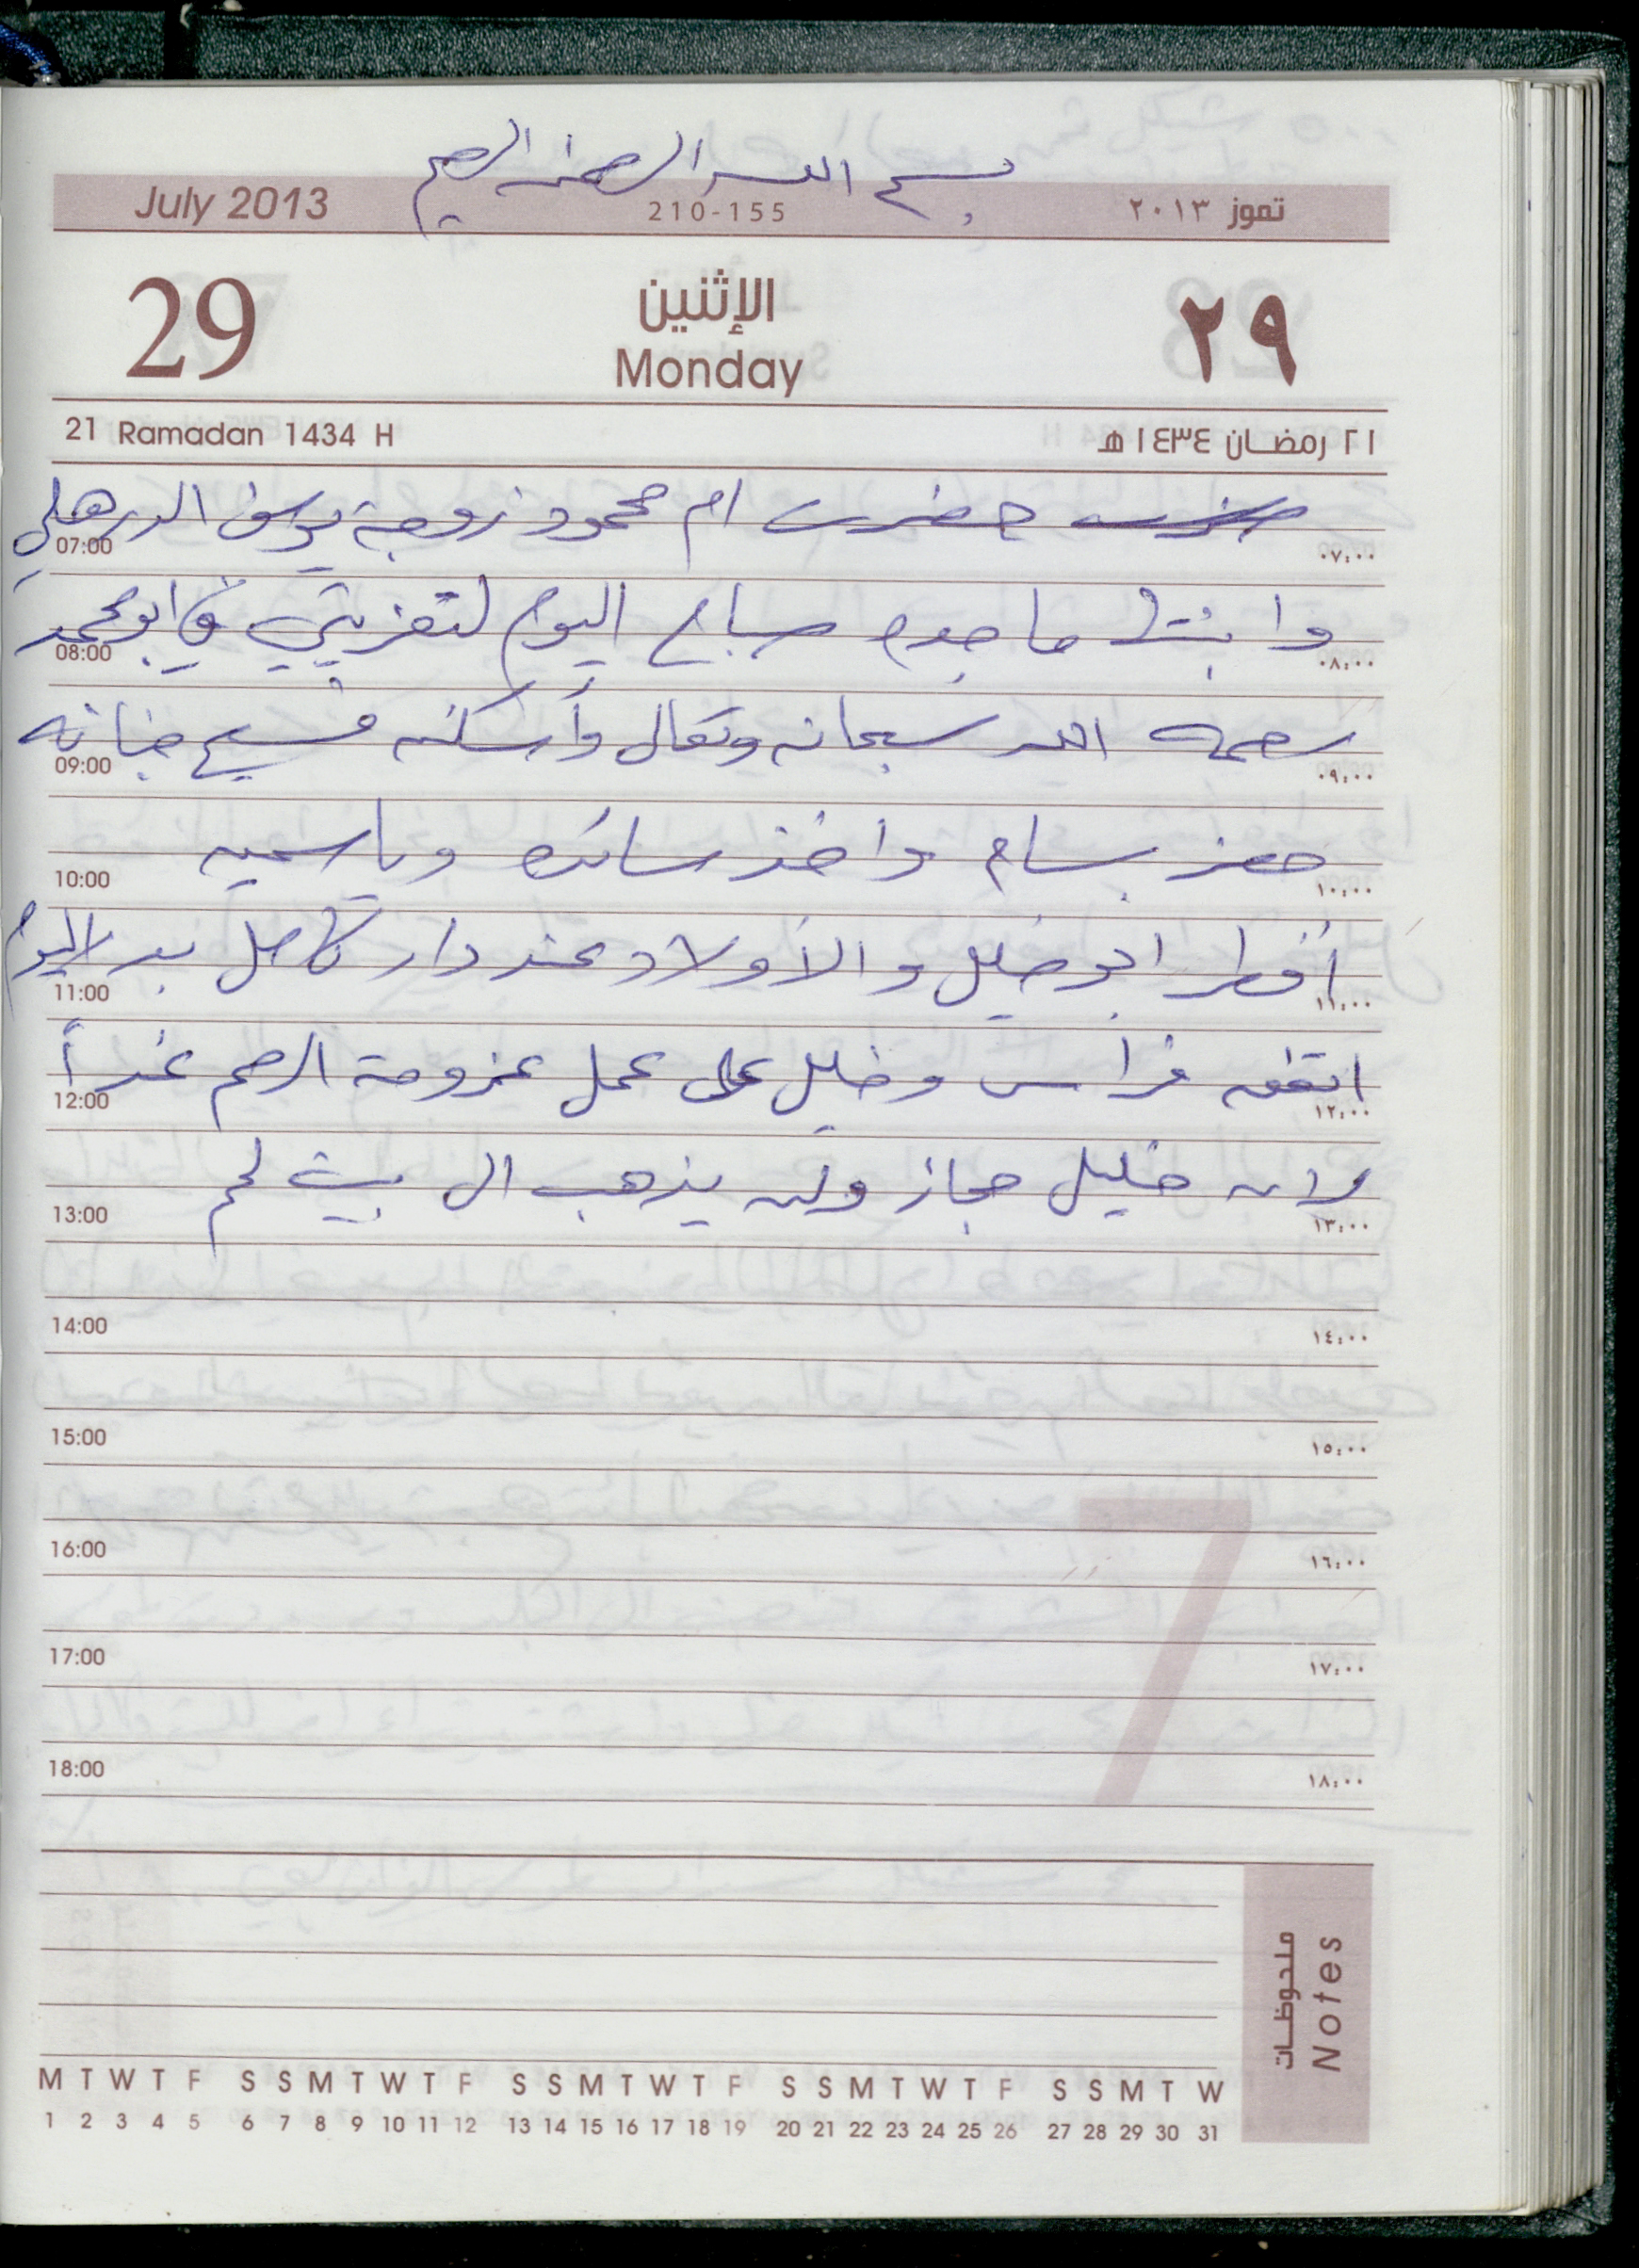 بسم الله الرحمن الرحيم
July 2013 210-155 تموز ٢٠١٣
29 الإثنين ٢٩
Monday
21 Ramadan 1434 H ٢١ رمضان ١٤٣٤ هـ
حضرت ام محمود زوجة يوسف الدرهلي
07:00 ٠٧:٠٠
وابنتها ماجده صباح اليوم لتعزيتي في ابو محمد
08:00 ٠٨:٠٠
رحمه الله سبحانه وتعالى وأسكنه فسيح جنانه
09:00 ٠٩:٠٠
حضر بسام وأخذ سائده وياسمين
10:00 ١٠:٠٠
أفطر ابو خليل والأولاد عند دار كامل بدر اليوم
11:00 ١١:٠٠
اتفق فراس وخليل على عمل عزومة الرحم غداً
12:00 ١٢:٠٠
لان خليل مجاز ولن يذهب الى بيت لحم
13:00 ١٣:٠٠
14:00 ١٤:٠٠
15:00 ١٥:٠٠
16:00 ١٦:٠٠
7
17:00 ١٧:٠٠
18:00 ١٨:٠٠
ملحوظات
Notes
M T W T F S S M T W T F S S M T W T F S S M T W T F S S M T W
1 2 3 4 5 6 7 8 9 10 11 12 13 14 15 16 17 18 19 20 21 22 23 24 25 26 27 28 29 30 31